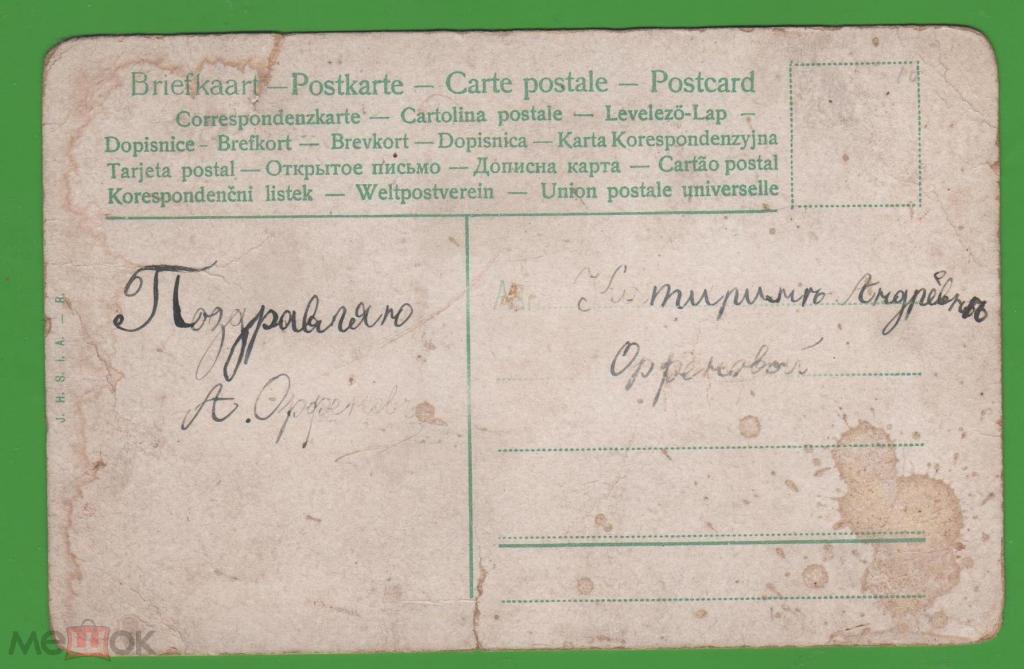 Briefkaart — Postkarte — Carte postale — Postcard
Correspondenzkarte — Cartolina postale — Levelező-Lap —
Dopisnice — Brefkort — Brevkort — Dopisnica — Karta Korespondenzyjna
Tarjeta postal — Открытое письмо — Дописна карта — Cartão postal
Korespondenčni listek — Weltpostverein — Union postale universelle
J. H. S. i. A. — R.
Поздравляю
А. Орфенов
Андрёвнѣ
Орфеновой
мешок